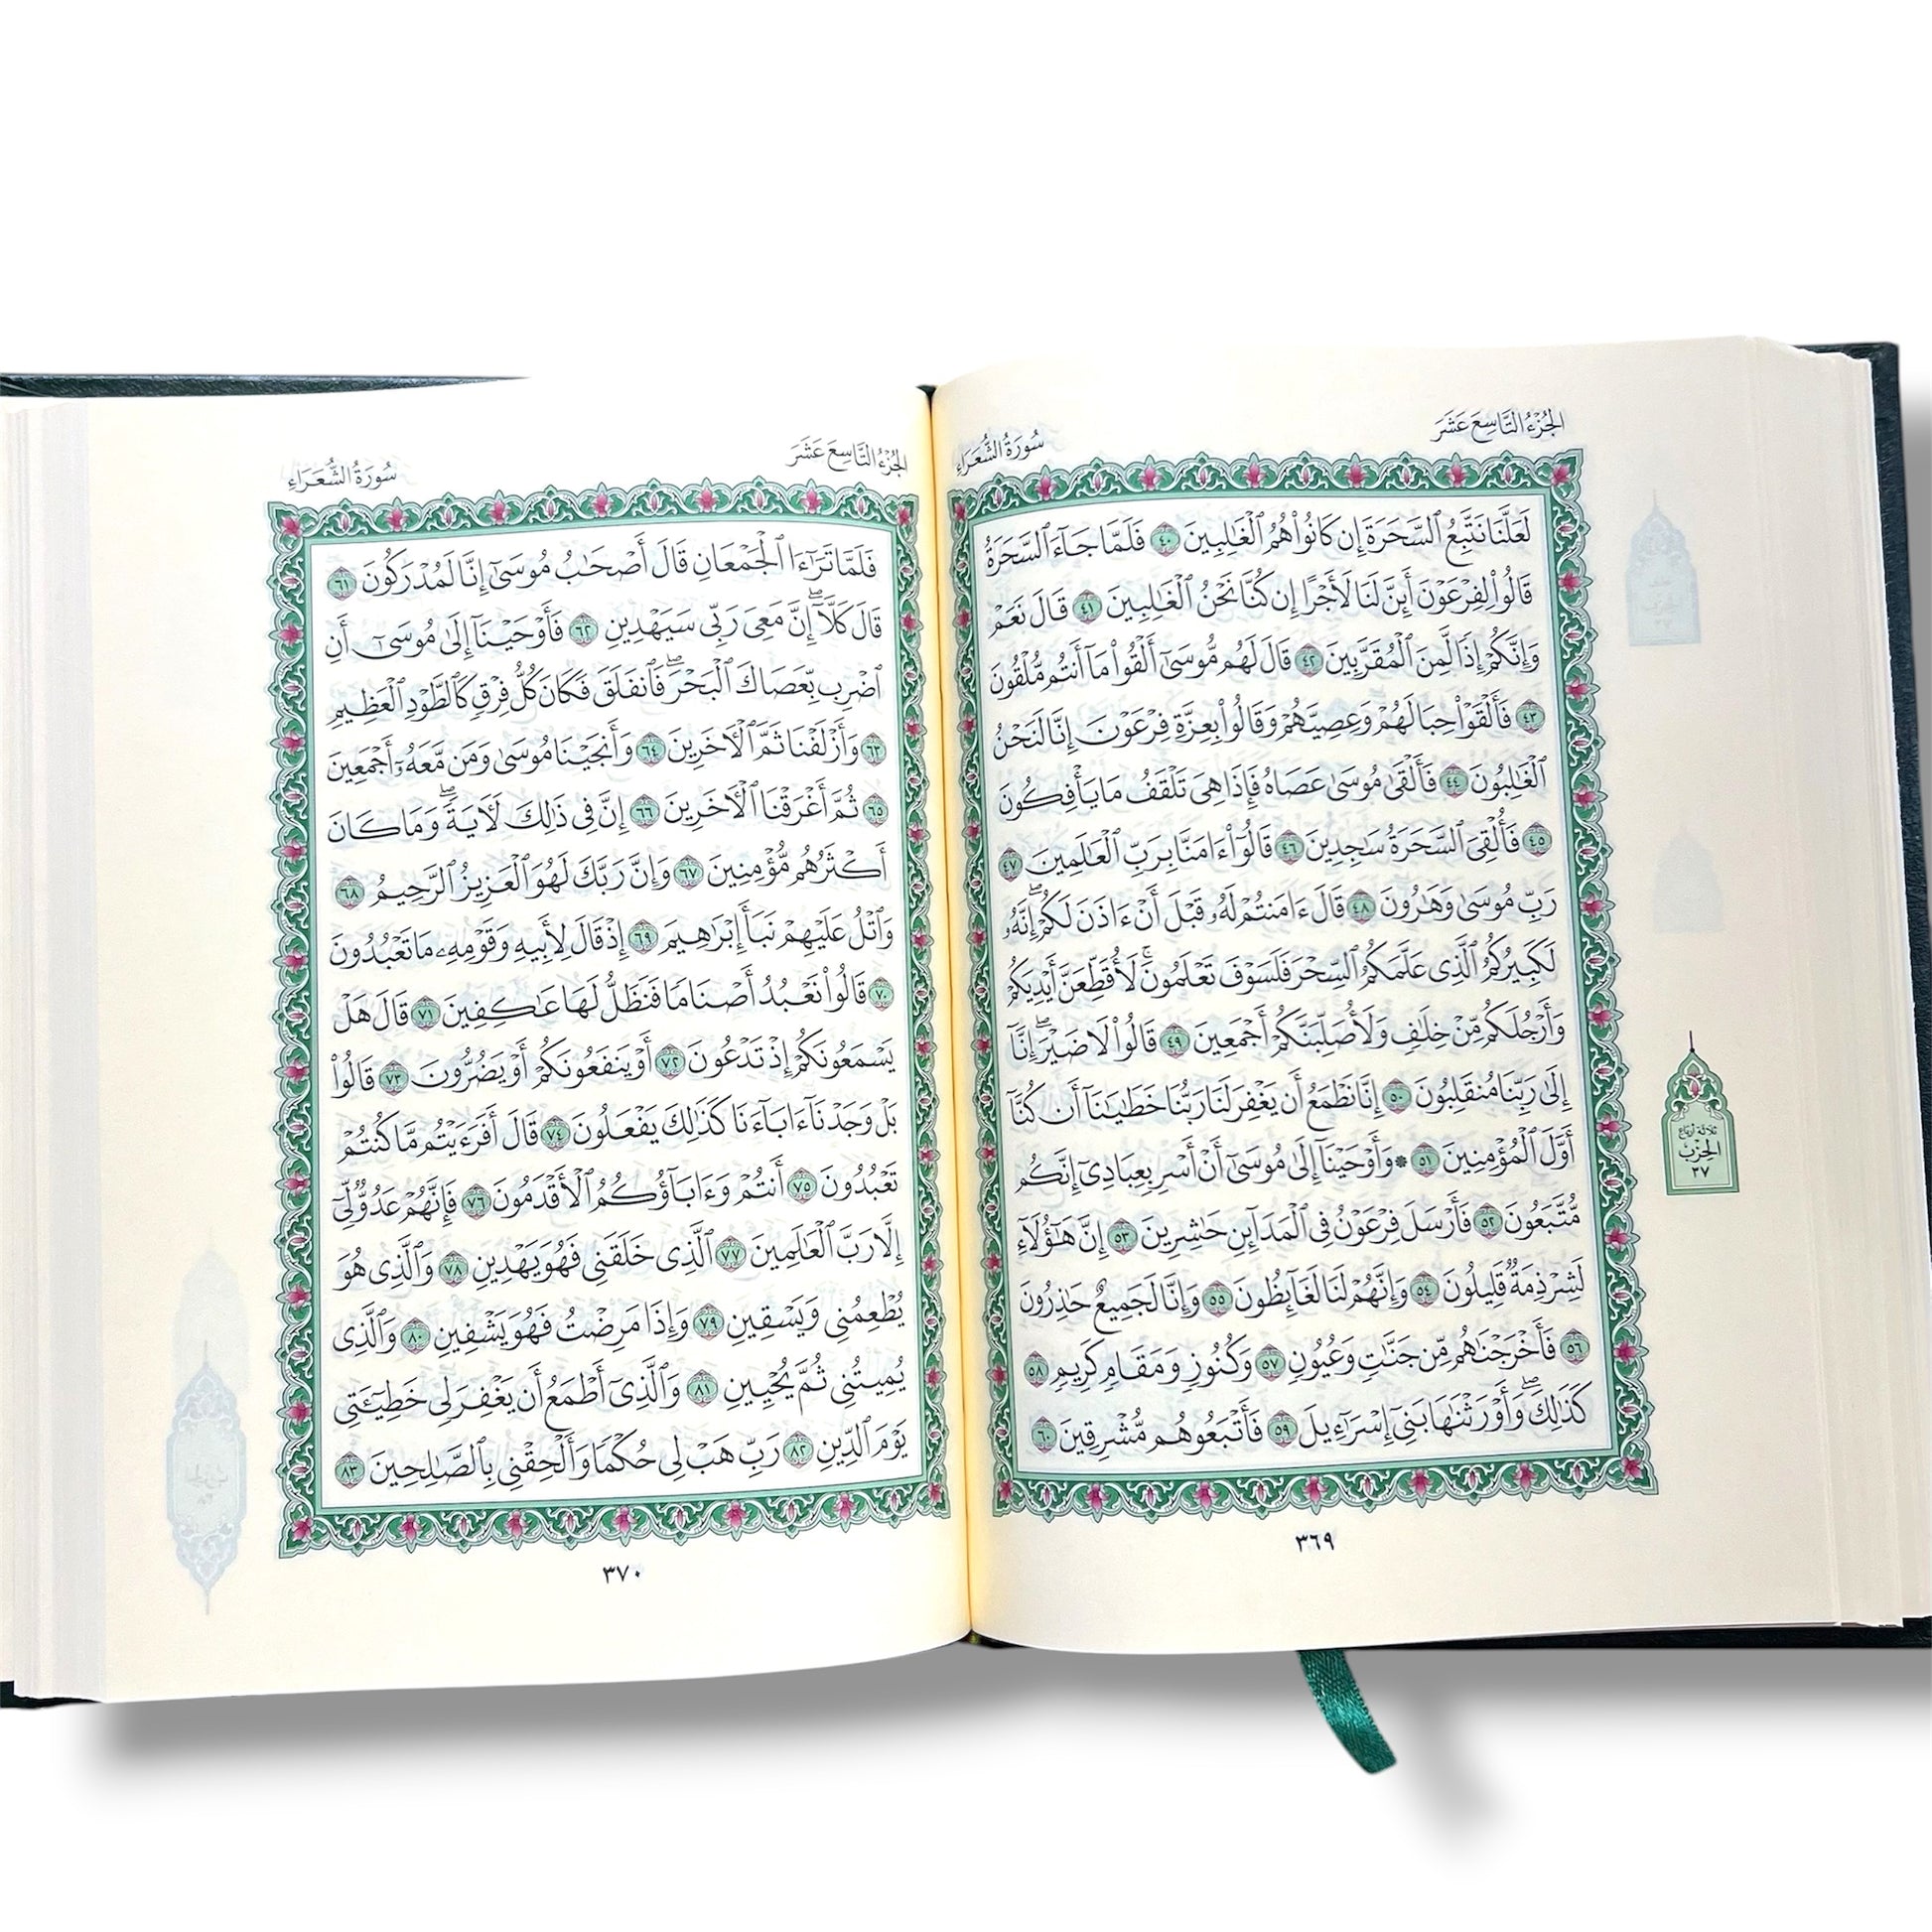 الجزء التاسع عشر
سورة الشعراء
لَعَلَّنَا نَتَّبِعُ ٱلسَّحَرَةَ إِن كَانُوا۟ هُمُ ٱلْغَٰلِبِينَ ٤٠ فَلَمَّا جَآءَ ٱلسَّحَرَةُ
قَالُوا۟ لِفِرْعَوْنَ أَئِنَّ لَنَا لَأَجْرًا إِن كُنَّا نَحْنُ ٱلْغَٰلِبِينَ ٤١ قَالَ نَعَمْ
وَإِنَّكُمْ إِذًا لَّمِنَ ٱلْمُقَرَّبِينَ ٤٢ قَالَ لَهُم مُّوسَىٰٓ أَلْقُوا۟ مَآ أَنتُم مُّلْقُونَ
٤٣ فَأَلْقَوْا۟ حِبَالَهُمْ وَعِصِيَّهُمْ وَقَالُوا۟ بِعِزَّةِ فِرْعَوْنَ إِنَّا لَنَحْنُ
ٱلْغَٰلِبُونَ ٤٤ فَأَلْقَىٰ مُوسَىٰ عَصَاهُ فَإِذَا هِىَ تَلْقَفُ مَا يَأْفِكُونَ
٤٥ فَأُلْقِىَ ٱلسَّحَرَةُ سَٰجِدِينَ ٤٦ قَالُوٓا۟ ءَامَنَّا بِرَبِّ ٱلْعَٰلَمِينَ ٤٧
رَبِّ مُوسَىٰ وَهَٰرُونَ ٤٨ قَالَ ءَامَنتُمْ لَهُۥ قَبْلَ أَنْ ءَاذَنَ لَكُمْ ۖ إِنَّهُۥ
لَكَبِيرُكُمُ ٱلَّذِى عَلَّمَكُمُ ٱلسِّحْرَ فَلَسَوْفَ تَعْلَمُونَ ۚ لَأُقَطِّعَنَّ أَيْدِيَكُمْ
وَأَرْجُلَكُم مِّنْ خِلَٰفٍ وَلَأُصَلِّبَنَّكُمْ أَجْمَعِينَ ٤٩ قَالُوا۟ لَا ضَيْرَ ۖ إِنَّآ
إِلَىٰ رَبِّنَا مُنقَلِبُونَ ٥٠ إِنَّا نَطْمَعُ أَن يَغْفِرَ لَنَا رَبُّنَا خَطَٰيَٰنَآ أَن كُنَّآ
أَوَّلَ ٱلْمُؤْمِنِينَ ٥١ ۞ وَأَوْحَيْنَآ إِلَىٰ مُوسَىٰٓ أَنْ أَسْرِ بِعِبَادِىٓ إِنَّكُم
مُّتَّبَعُونَ ٥٢ فَأَرْسَلَ فِرْعَوْنُ فِى ٱلْمَدَآئِنِ حَٰشِرِينَ ٥٣ إِنَّ هَٰٓؤُلَآءِ
لَشِرْذِمَةٌ قَلِيلُونَ ٥٤ وَإِنَّهُمْ لَنَا لَغَآئِظُونَ ٥٥ وَإِنَّا لَجَمِيعٌ حَٰذِرُونَ
٥٦ فَأَخْرَجْنَٰهُم مِّن جَنَّٰتٍ وَعُيُونٍ ٥٧ وَكُنُوزٍ وَمَقَامٍ كَرِيمٍ ٥٨
كَذَٰلِكَ ۖ وَأَوْرَثْنَٰهَا بَنِىٓ إِسْرَٰٓءِيلَ ٥٩ فَأَتْبَعُوهُم مُّشْرِقِينَ ٦٠
ثلاثة أرباع
الحزب
٣٧
٣٦٩
الجزء التاسع عشر
سورة الشعراء
فَلَمَّا تَرَٰٓءَا ٱلْجَمْعَانِ قَالَ أَصْحَٰبُ مُوسَىٰٓ إِنَّا لَمُدْرَكُونَ ٦١
قَالَ كَلَّآ ۖ إِنَّ مَعِىَ رَبِّى سَيَهْدِينِ ٦٢ فَأَوْحَيْنَآ إِلَىٰ مُوسَىٰٓ أَنِ
ٱضْرِب بِّعَصَاكَ ٱلْبَحْرَ ۖ فَٱنفَلَقَ فَكَانَ كُلُّ فِرْقٍ كَٱلطَّوْدِ ٱلْعَظِيمِ
٦٣ وَأَزْلَفْنَا ثَمَّ ٱلْءَاخَرِينَ ٦٤ وَأَنجَيْنَا مُوسَىٰ وَمَن مَّعَهُۥٓ أَجْمَعِينَ
٦٥ ثُمَّ أَغْرَقْنَا ٱلْءَاخَرِينَ ٦٦ إِنَّ فِى ذَٰلِكَ لَءَايَةً ۖ وَمَا كَانَ
أَكْثَرُهُم مُّؤْمِنِينَ ٦٧ وَإِنَّ رَبَّكَ لَهُوَ ٱلْعَزِيزُ ٱلرَّحِيمُ ٦٨
وَٱتْلُ عَلَيْهِمْ نَبَأَ إِبْرَٰهِيمَ ٦٩ إِذْ قَالَ لِأَبِيهِ وَقَوْمِهِۦ مَا تَعْبُدُونَ
٧٠ قَالُوا۟ نَعْبُدُ أَصْنَامًا فَنَظَلُّ لَهَا عَٰكِفِينَ ٧١ قَالَ هَلْ
يَسْمَعُونَكُمْ إِذْ تَدْعُونَ ٧٢ أَوْ يَنفَعُونَكُمْ أَوْ يَضُرُّونَ ٧٣ قَالُوا۟
بَلْ وَجَدْنَآ ءَابَآءَنَا كَذَٰلِكَ يَفْعَلُونَ ٧٤ قَالَ أَفَرَءَيْتُم مَّا كُنتُمْ
تَعْبُدُونَ ٧٥ أَنتُمْ وَءَابَآؤُكُمُ ٱلْأَقْدَمُونَ ٧٦ فَإِنَّهُمْ عَدُوٌّ لِّىٓ
إِلَّا رَبَّ ٱلْعَٰلَمِينَ ٧٧ ٱلَّذِى خَلَقَنِى فَهُوَ يَهْدِينِ ٧٨ وَٱلَّذِى هُوَ
يُطْعِمُنِى وَيَسْقِينِ ٧٩ وَإِذَا مَرِضْتُ فَهُوَ يَشْفِينِ ٨٠ وَٱلَّذِى
يُمِيتُنِى ثُمَّ يُحْيِينِ ٨١ وَٱلَّذِىٓ أَطْمَعُ أَن يَغْفِرَ لِى خَطِيٓـَٔتِى
يَوْمَ ٱلدِّينِ ٨٢ رَبِّ هَبْ لِى حُكْمًا وَأَلْحِقْنِى بِٱلصَّٰلِحِينَ ٨٣
٣٧٠